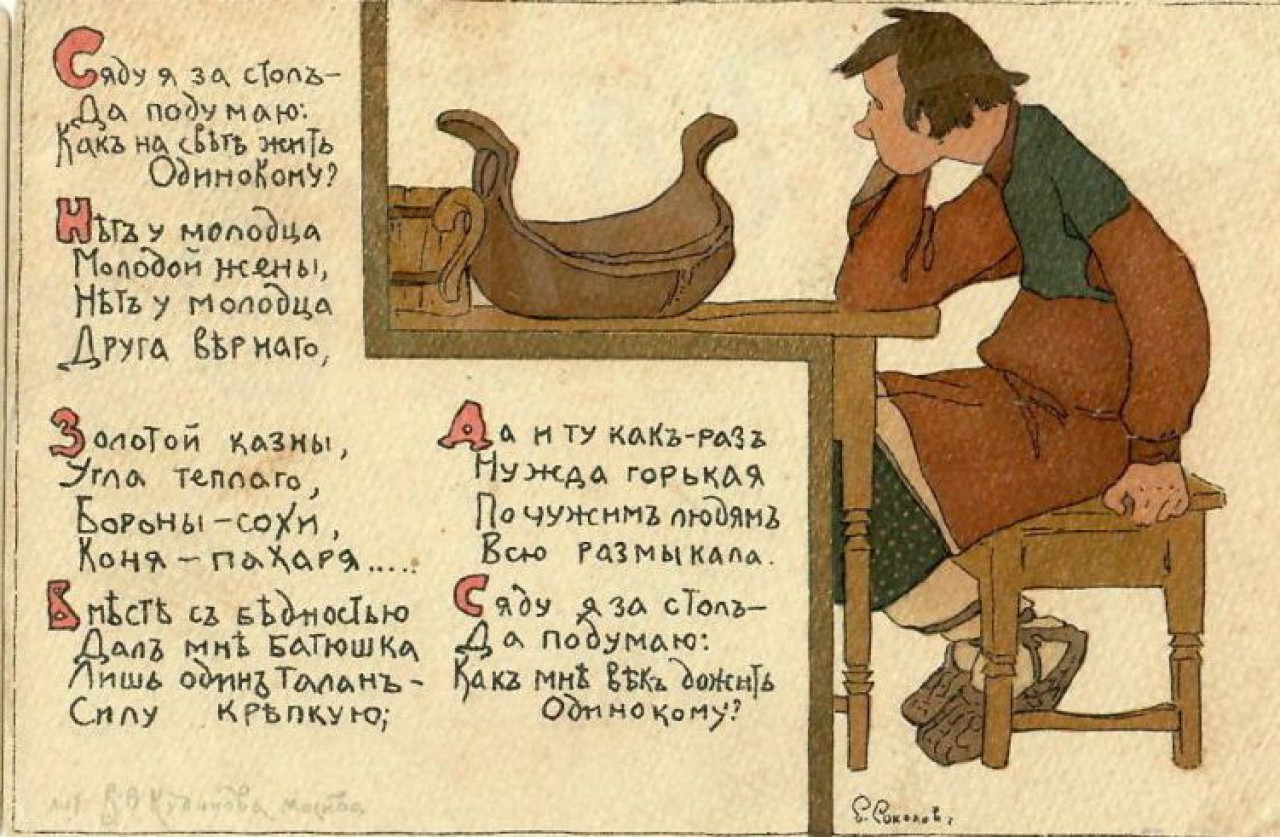 Сяду я за столъ-
Да подумаю:
Какъ на свѣтѣ жить
Одинокому?
Нѣтъ у молодца
Молодой жены,
Нѣтъ у молодца
Друга вѣрнаго,
Золотой казны,
Угла теплаго,
Бороны-сохи,
Коня-пахаря.....
Вмѣстѣ съ бѣдностью
Далъ мнѣ батюшка
Лишь одинъ таланъ-
Силу крѣпкую;
Да и ту какъ-разъ
Нужда горькая
По чужимъ людямъ
Всю размыкала.
Сяду я за столъ-
Да подумаю:
Какъ мнѣ вѣкъ дожить
Одинокому?
москва
Е. Соколов.